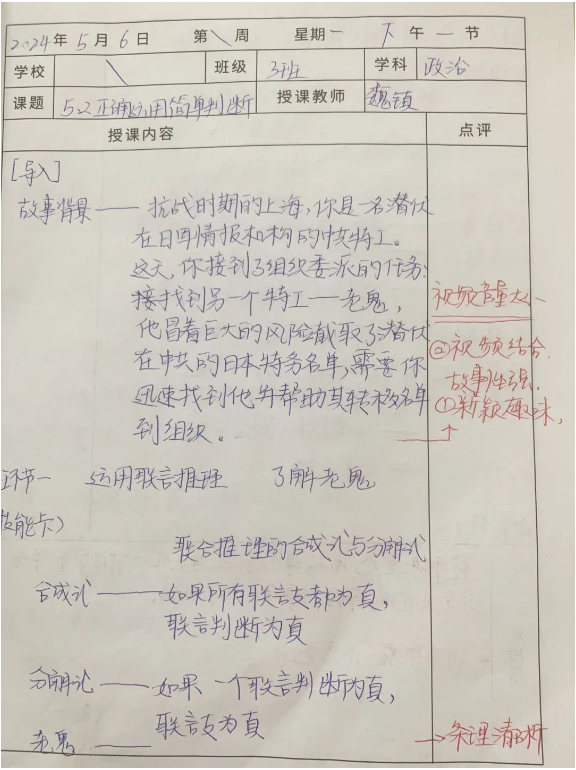 2024年 5月 6日 第\周 星期一 下午一节
学校 \ 班级 3班 学科 政治
课题 5.2正确运用简单判断 授课教师 魏镇
授课内容 点评
[导入]
故事背景——抗战时期的上海,你是一名潜伏
在日军情报机构的中共特工。
这天,你接到了组织委派的任务:
接找到另一个特工——老鬼,
他冒着巨大的风险截取了潜伏
在中共的日本特务名单,需要你
迅速找到他并帮助其转移名单
到组织。
视频音量太小
②视频结合
故事性强.
①新颖趣味,
环节一 运用联言推理 了解老鬼
技能卡)
联合推理的合成式与分解式
合成式——如果所有联言支都为真,
联言判断为真
分解式——如果一个联言判断为真,
联言支为真
老鬼——
→条理清晰